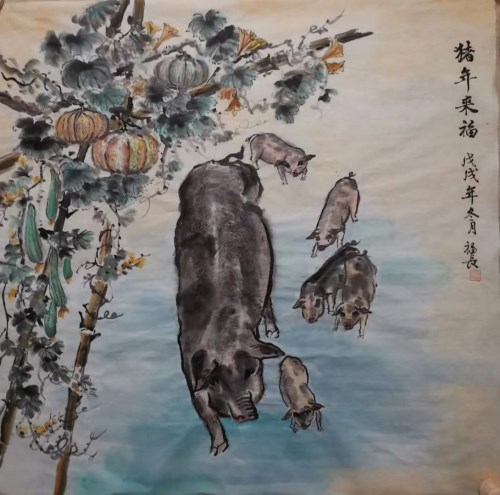 猪年来福
戊戌年冬月福长